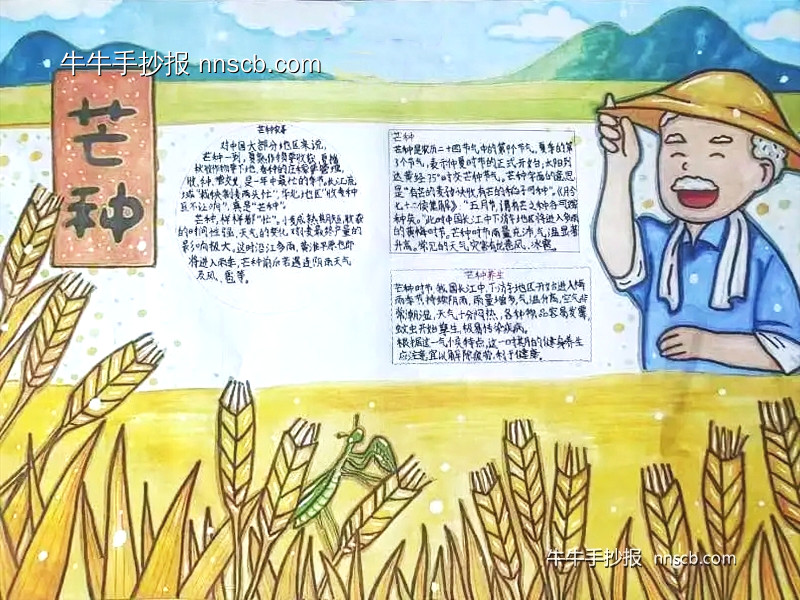 牛牛手抄报 nnscb.com
芒种
芒种农事
对中国大部分地区来说,
芒种一到,夏熟作物要收获,夏播
秋收作物要下地,春种的庄稼要管理,
收、种、管交叉,是一年中最忙的季节。长江流
域“栽秧割麦两头忙”,华北地区“收麦种
豆不让晌”,真是“芒种”。
芒种,样样都“忙”。小麦成熟期短,收获
的时间性强,天气的变化对小麦最终产量的
影响极大。这时沿江多雨,黄淮平原也即
将进入雨季,芒种前后若遇连阴雨天气
及风、雹等。
芒种
芒种是农历二十四节气中的第9个节气,夏季的第
3个节气,表示仲夏时节的正式开始;太阳到
达黄经75°时交芒种节气。芒种字面的意思
是“有芒的麦子快收,有芒的稻子可种”。《月令
七十二候集解》:“五月节,谓有芒之种谷可稼
种矣。”此时中国长江中下游地区将进入多雨
的黄梅时节。芒种时节雨量充沛,气温显著
升高。常见的天气灾害有龙卷风、冰雹
芒种养生
芒种时节,我国长江中、下游地区开始进入梅
雨季节,持续阴雨,雨量增多,气温升高,空气非
常潮湿,天气十分闷热,各种物品容易发霉,
蚊虫开始孳生,极易传染疾病。
根据这一气候特点,这一时期的健身养生
应注意,宜以解除疲劳,利于健康。
牛牛手抄报 nnscb.com